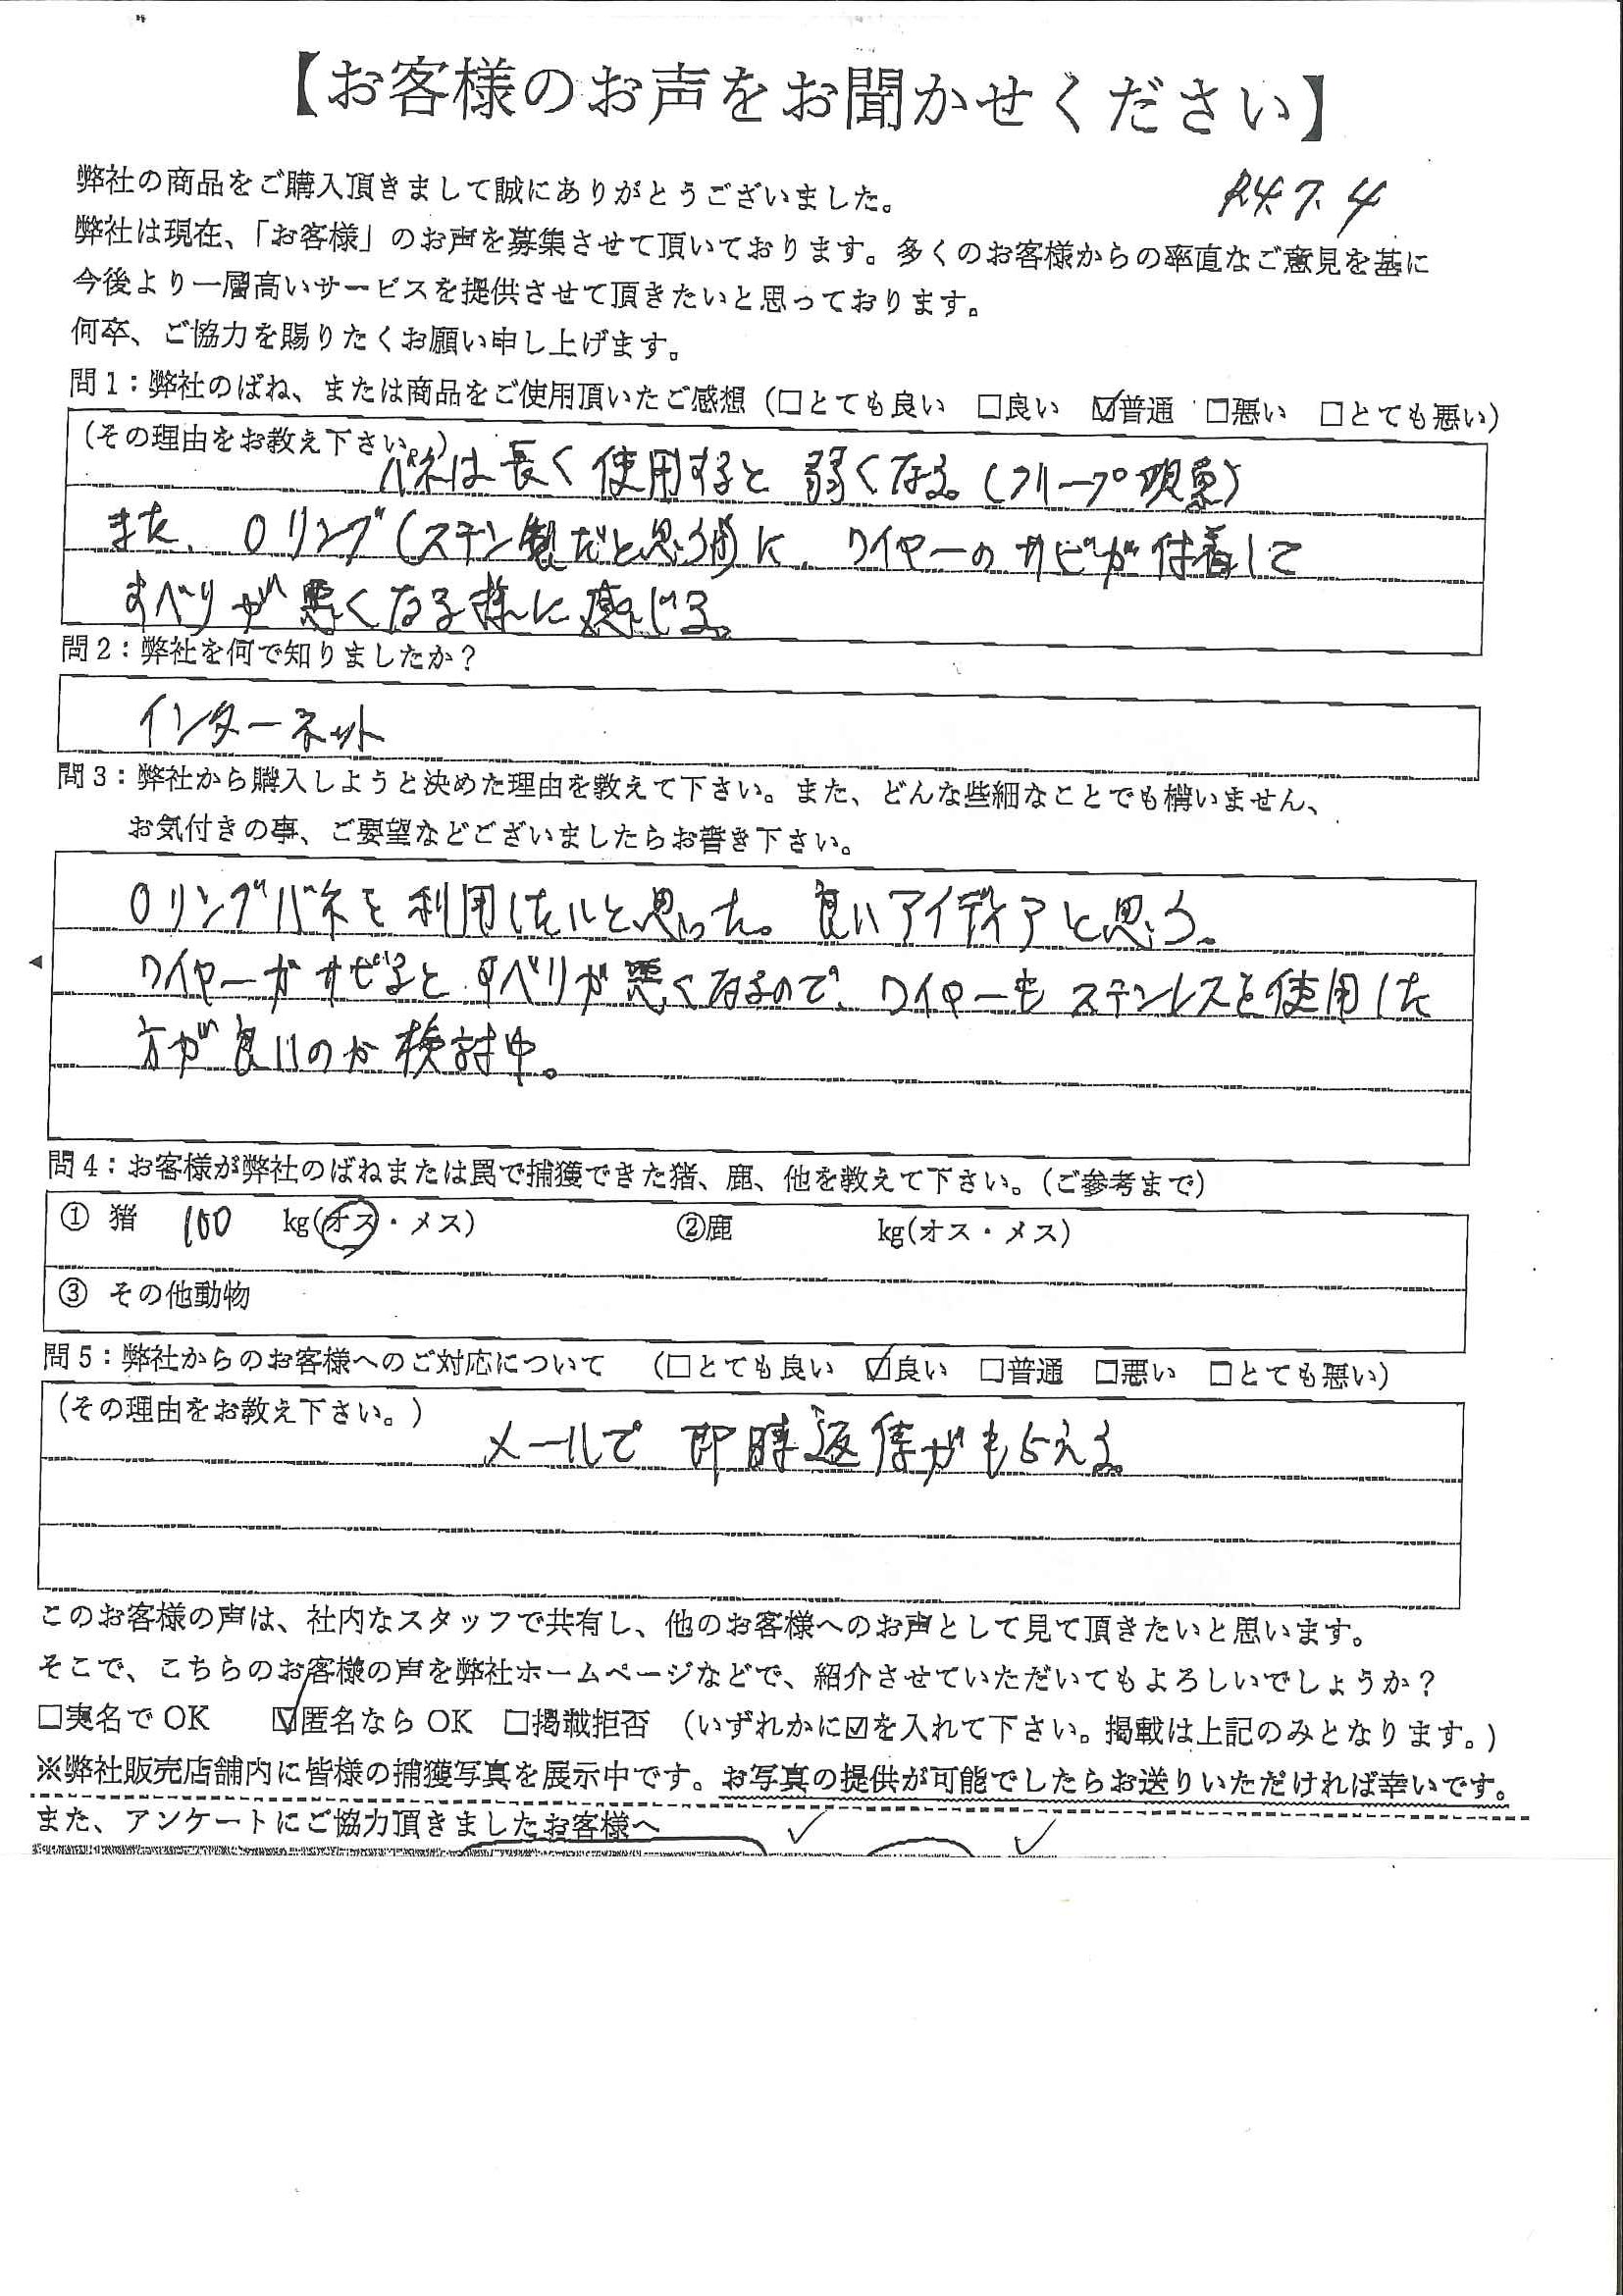 【お客様のお声をお聞かせください】
弊社の商品をご購入頂きまして誠にありがとうございました。
R4.7.4
弊社は現在、「お客様」のお声を募集させて頂いております。多くのお客様からの率直なご意見を基に
今後より一層高いサービスを提供させて頂きたいと思っております。
何卒、ご協力を賜りたくお願い申し上げます。
問1：弊社のばね、または商品をご使用頂いたご感想（□とても良い　□良い　☑普通　□悪い　□とても悪い）
（その理由をお教え下さい。）
バネは長く使用すると弱くなる。(フリープ現象)
また、Oリング(ステン製だと思う)に、ワイヤーのサビが付着して
すべりが悪くなる様に感じる。
問2：弊社を何で知りましたか？
インターネット
問3：弊社から購入しようと決めた理由を教えて下さい。また、どんな些細なことでも構いません、
お気付きの事、ご要望などございましたらお書き下さい。
Oリングバネを利用したいと思った。良いアイディアと思う。
ワイヤーがサビるとすべりが悪くなるので、ワイヤーもステンレスを使用した
方が良いのか検討中。
問4：お客様が弊社のばねまたは罠で捕獲できた猪、鹿、他を教えて下さい。（ご参考まで）
① 猪　100　kg(オス・メス)　②鹿　kg(オス・メス)
③ その他動物
問5：弊社からのお客様へのご対応について　（□とても良い　☑良い　□普通　□悪い　□とても悪い）
（その理由をお教え下さい。）
メールで即時返信がもらえる。
このお客様の声は、社内なスタッフで共有し、他のお客様へのお声として見て頂きたいと思います。
そこで、こちらのお客様の声を弊社ホームページなどで、紹介させていただいてもよろしいでしょうか？
□実名でOK　☑匿名ならOK　□掲載拒否　（いずれかに☑を入れて下さい。掲載は上記のみとなります。）
※弊社販売店舗内に皆様の捕獲写真を展示中です。お写真の提供が可能でしたらお送りいただければ幸いです。
また、アンケートにご協力頂きましたお客様へ